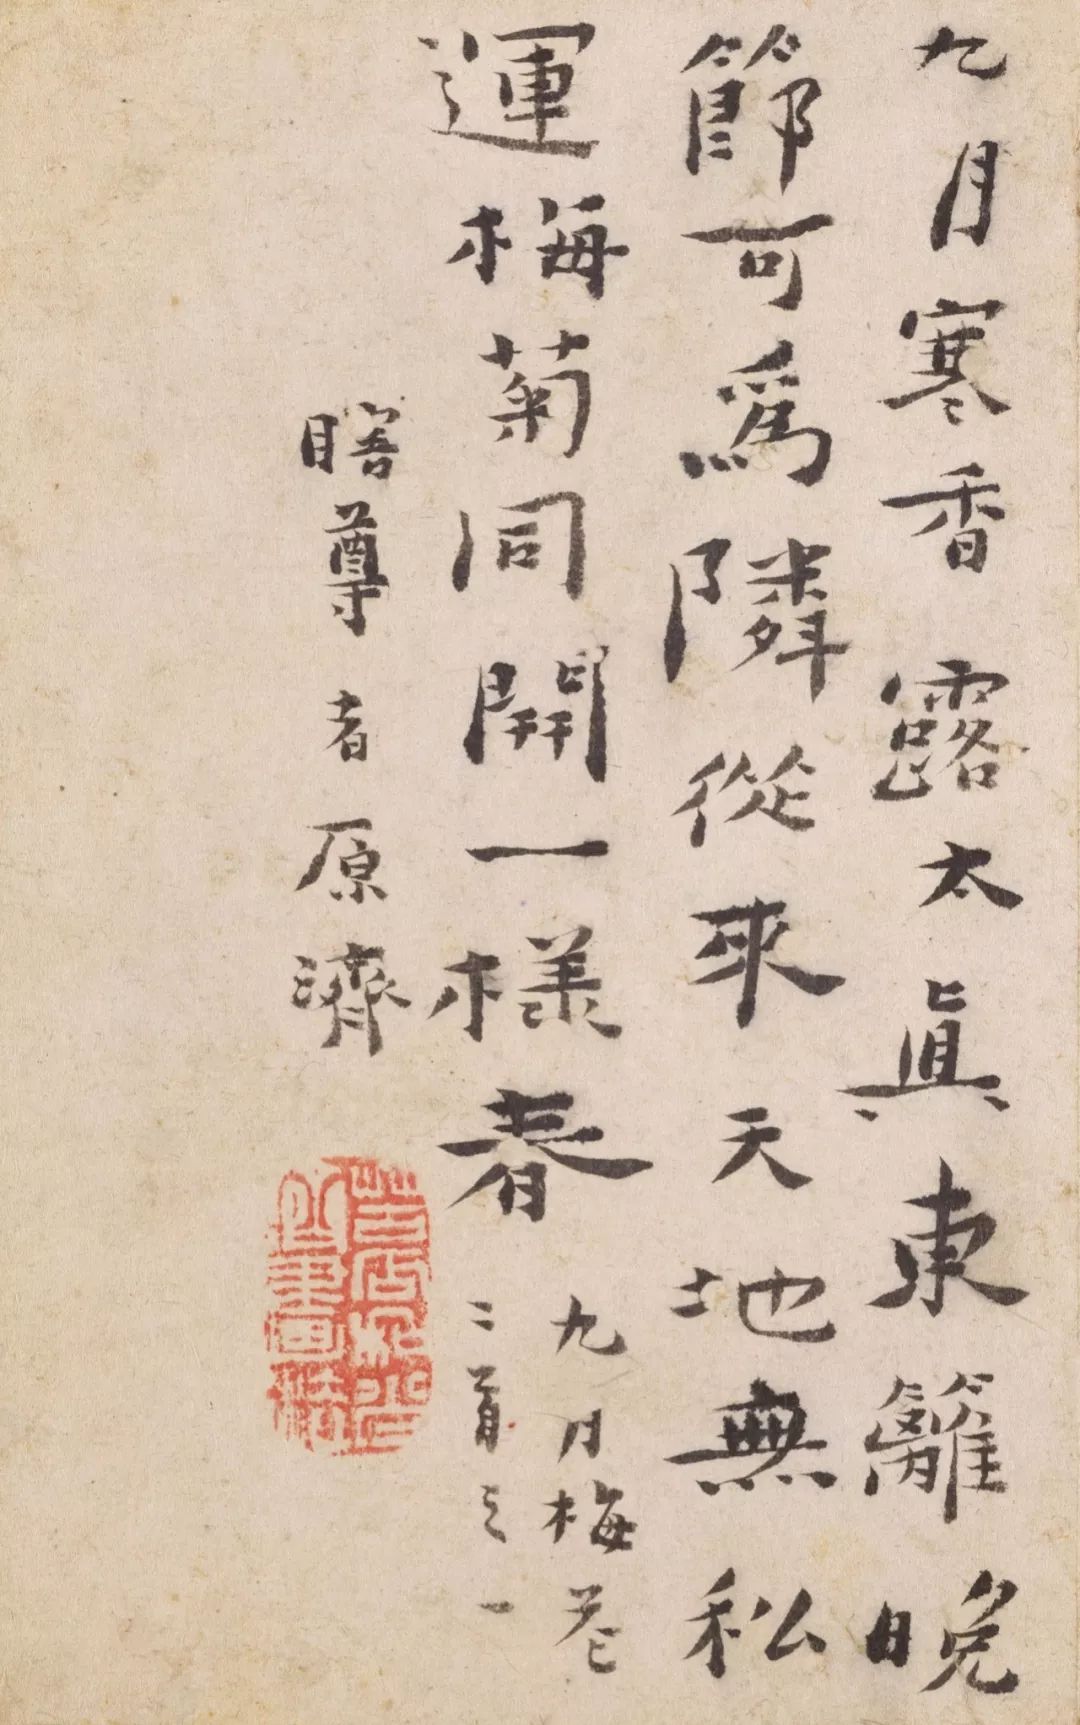 九月寒香露太真東籬晚
節可爲隣從來天地無私
運梅菊同開一様春
九月梅花
二首之一
瞎尊者原濟